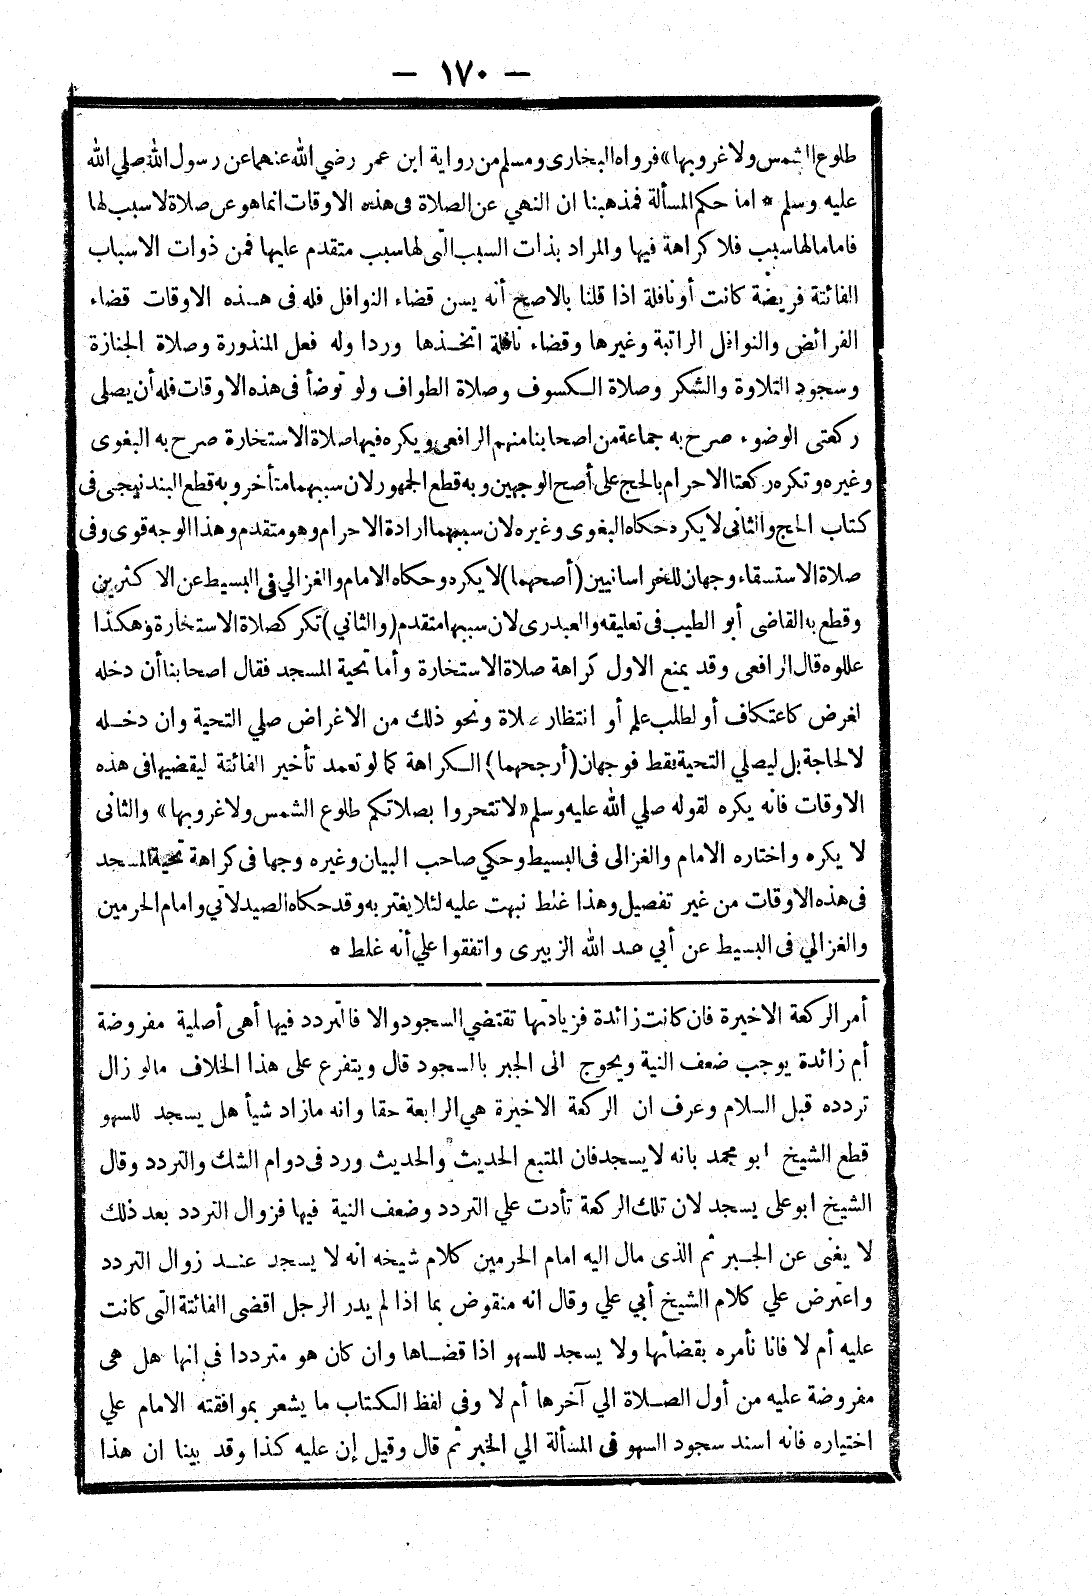 — ١٧٠ —
طلوع الشمس ولا غروبها» فرواه البخارى ومسلم من رواية ابن عمر رضي الله عنهما عن رسول الله صلي الله
عليه وسلم * اما حكم المسألة فمذهبنا ان النهي عن الصلاة فى هذه الاوقات انما هو عن صلاة لا سبب لها
فاما مالها سبب فلا كراهة فيها والمراد بذات السبب التى لها سبب متقدم عليها فمن ذوات الاسباب
الفائتة فريضة كانت أو نافلة اذا قلنا بالاصح أنه يسن قضاء النوافل فله فى هذه الاوقات قضاء
الفرائض والنوافل الراتبة وغيرها وقضاء نافلة اتخذها وردا وله فعل المنذورة وصلاة الجنازة
وسجود التلاوة والشكر وصلاة الكسوف وصلاة الطواف ولو توضأ فى هذه الاوقات فله أن يصلى
ركعتى الوضوء صرح به جماعة من اصحابنا منهم الرافعى ويكره فيها صلاة الاستخارة صرح به البغوى
وغيره وتكره ركعتا الاحرام بالحج على أصح الوجهين وبه قطع الجمهور لان سببهما متأخر وبه قطع البندنيجى فى
كتاب الحج والثانى لا يكره حكاه البغوى وغيره لان سببهما ارادة الاحرام وهو متقدم وهذا الوجه قوى وفى
صلاة الاستسقاء وجهان للخراسانيين (أصحهما) لا يكره وحكاه الامام والغزالي فى البسيط عن الاكثرين
وقطع به القاضى أبو الطيب فى تعليقه والعبدرى لان سببها متقدم (والثاني) تكره كصلاة الاستخارة وهكذا
عللوه قال الرافعى وقد يمنع الاول كراهة صلاة الاستخارة وأما تحية المسجد فقال اصحابنا أن دخله
لغرض كاعتكاف أو لطلب علم أو انتظار صلاة ونحو ذلك من الاغراض صلي التحية وان دخله
لا لحاجة بل ليصلي التحية فقط فوجهان (أرجحهما) الكراهة كما لو تعمد تأخير الفائتة ليقضيها فى هذه
الاوقات فانه يكره لقوله صلي الله عليه وسلم «لا تتحروا بصلاتكم طلوع الشمس ولا غروبها» والثانى
لا يكره واختاره الامام والغزالى فى البسيط وحكي صاحب البيان وغيره وجها فى كراهة تحية المسجد
فى هذه الاوقات من غير تفصيل وهذا غلط نبهت عليه لئلا يغتر به وقد حكاه الصيدلاني وامام الحرمين
والغزالي فى البسيط عن أبي عبد الله الزبيرى واتفقوا علي أنه غلط *
أمر الركعة الاخيرة فان كانت زائدة فزيادتها تقتضي السجود والا فالتردد فيها أهى أصلية مفروضة
أم زائدة يوجب ضعف النية ويحوج الى الجبر بالسجود قال ويتفرع على هذا الخلاف مالو زال
تردده قبل السلام وعرف ان الركعة الاخيرة هي الرابعة حقا وانه مازاد شيأ هل يسجد للسهو
قطع الشيخ ابو محمد بانه لا يسجد فان المتبع الحديث والحديث ورد فى دوام الشك والتردد وقال
الشيخ ابو على يسجد لان تلك الركعة تأدت علي التردد وضعف النية فيها فزوال التردد بعد ذلك
لا يغنى عن الجبر ثم الذى مال اليه امام الحرمين كلام شيخه انه لا يسجد عند زوال التردد
واعترض علي كلام الشيخ أبي علي وقال انه منقوض بما اذا لم يدر الرجل اقضى الفائتة التى كانت
عليه أم لا فانا نأمره بقضائها ولا يسجد للسهو اذا قضاها وان كان هو مترددا في انها هل هى
مفروضة عليه من أول الصلاة الي آخرها أم لا وفى لفظ الكتاب ما يشعر بموافقته الامام علي
اختياره فانه اسند سجود السهو فى المسألة الي الخبر ثم قال وقيل إن عليه كذا وقد بينا ان هذا